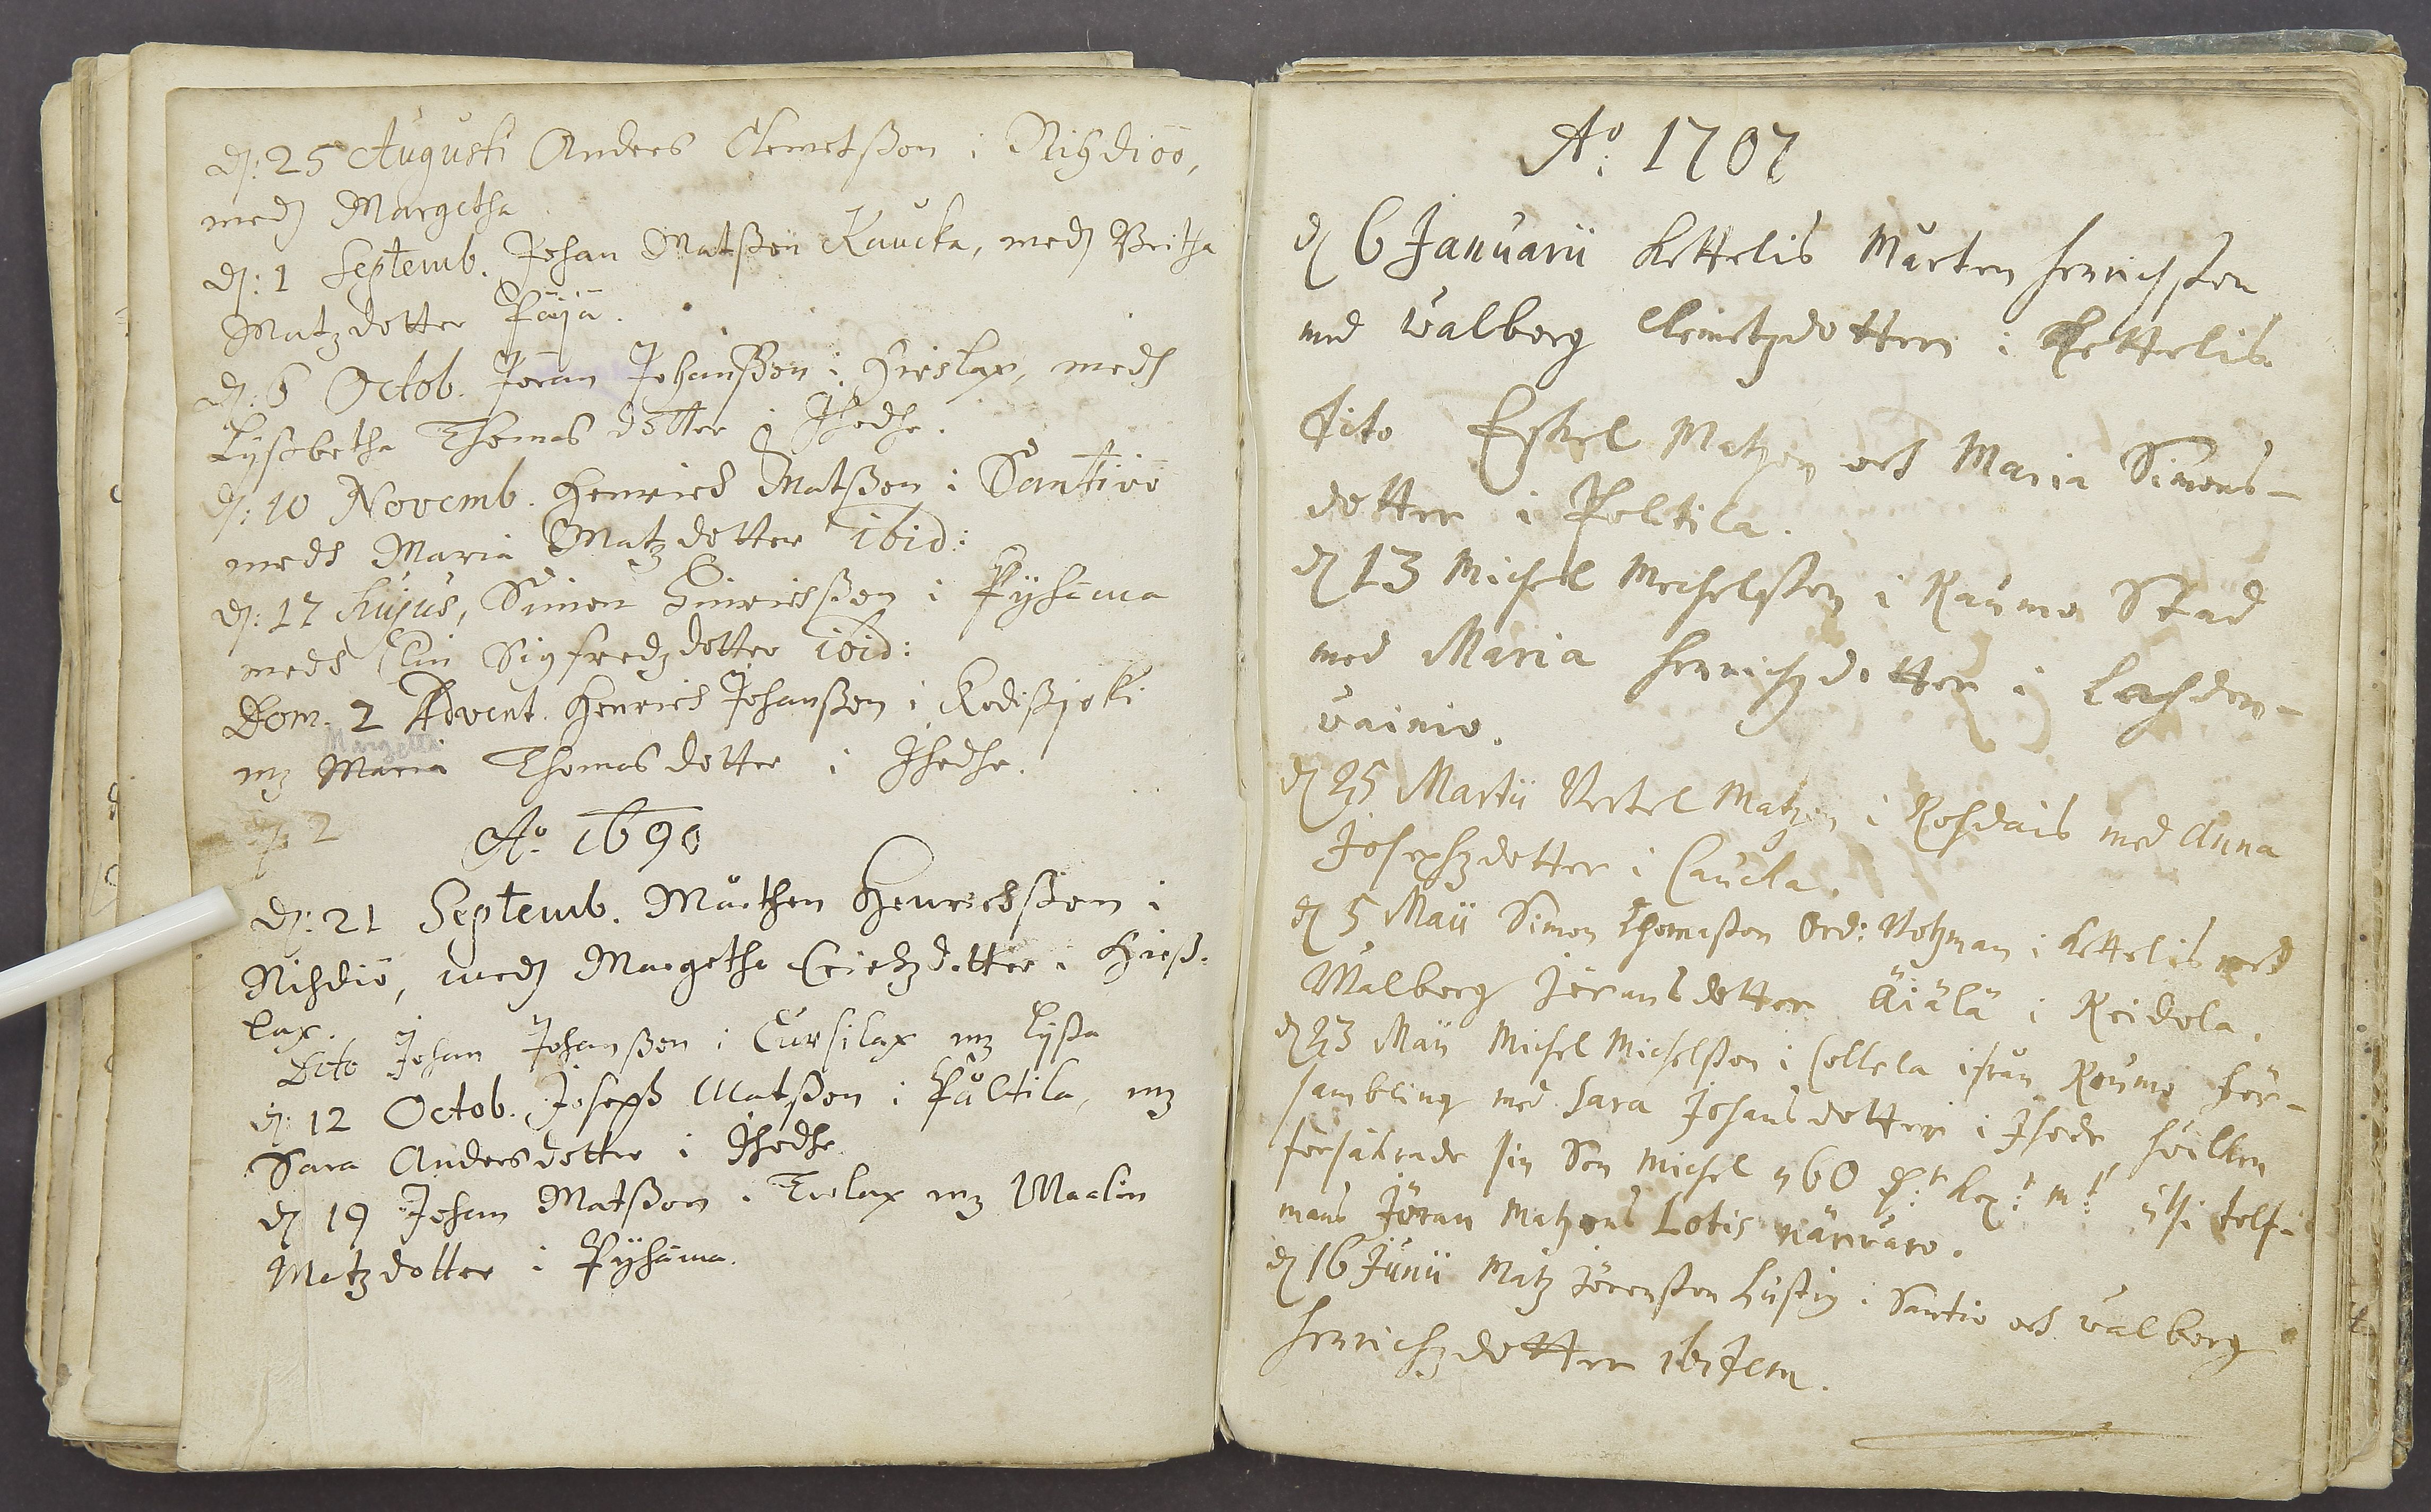 d: 25 Augusti Anders Clemetßon i Nihdiöö,
medh Margetha
d: 1 Septemb. Johan Matßon Kaucka, medh Britha
Matzdotter Päijä.
d: 6 Octob. Jöran Johanßon i Hirslax, medh
Lyßbetha Thomasdotter i Ihodhe.
d: 10 Novemb. Henrich Matßon i Santiöö
medh Maria Matzdotter ibid:
d: 17 hujus, Simon Hinrichßon i Pyhäma
medh Elin Sigfredzdotter ibid:
Dom. 2 Advent. Henrich Johanßon i Kodißjoki
mz Maria Margetta Thomasdotter i Ihodhe.
p. 2
Ao 1690
d: 21 Septemb. Mårthen Henrichßon i
Nihdiö, medh Margetha Erichzdotter i Hirß-
lax.
Dito Johan Johanßon i Cursilax mz Lyßa
d: 12 Octob. Joseph Matßon i Påltila, mz
Sara Andersdotter i Ihodhe
d 19 Johan Matßon i Treslax mz Maalin
Matzdotter i Pyhäma.
Ao: 1707
d 6 Januarii Kettelis Mårten Henrichßon
med Walborg Clemetzdotter i Kettelis.
Dito Eskel Matzon och Maria Simons-
dotter i Poltila.
d 13 Michel Mechelßon i Raumo Stad
med Maria Henrichzdotter i Lahden-
vainio.
d 25 Martii Bertel Matzon i Rohdais med Anna
Josephzdotter i Caucka.
d 5 Maii Simon Thomaßon Ord: Botzman i Kettelis med
Walborg Jöransdotter Äiälä i Reidola.
d 23 Maii Michel Michelßon i Collela ifrån Raumo för-
sambling med Sara Johansdotter i Ihode, hvilken
försäkrade sin Son Michel à 60 Kop: mt uthi tolf-
mans Jöran Matzons Lotis närvaro.
d 16 Junii Matz Jöranßon Lustig i Santio och Walborg
Henrichzdotter ibidem.